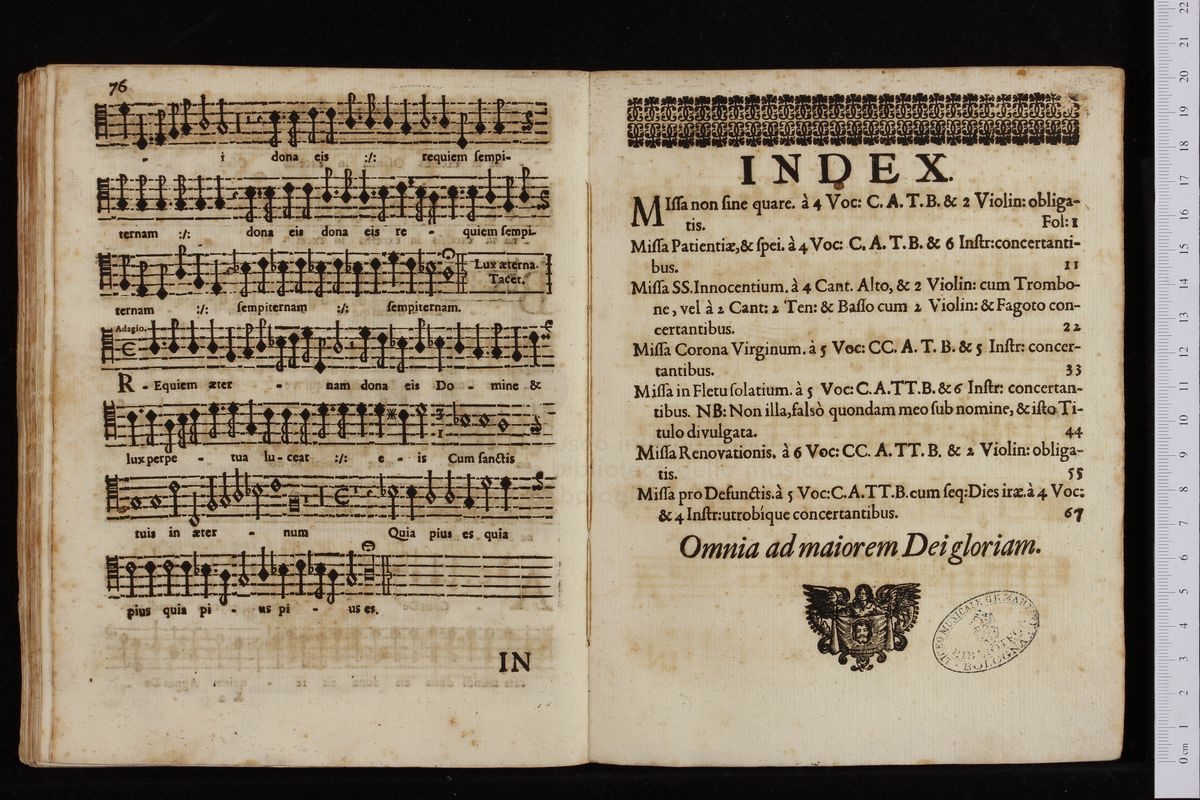 76
- i dona eis :/: requiem ſempi-
ternam :/: dona eis dona eis re - quiem ſempi-
Lux æterna.
Tacet.
ternam :/: ſempiternam :/: ſempiternam.
Adagio.
R - Equiem æter - nam dona eis Do - mine &
lux perpe - tua lu - ceat :/: e - is Cum ſanctis
tuis in æter - num Quia pius es quia
pius quia pi - us pi - us es.
IN
INDEX.
MIſſa non ſine quare. à 4 Voc: C. A. T. B. & 2 Violin: obliga-
tis. Fol: 1
Miſſa Patientiæ, & ſpei. à 4 Voc: C. A. T. B. & 6 Inſtr: concertanti-
bus. 11
Miſſa SS. Innocentium. à 4 Cant. Alto, & 2 Violin: cum Trombo-
ne, vel à 2 Cant: 2 Ten: & Baſſo cum 2 Violin: & Fagoto con-
certantibus. 22
Miſſa Corona Virginum. à 5 Voc: CC. A. T. B. & 5 Inſtr: concer-
tantibus. 33
Miſſa in Fletu ſolatium. à 5 Voc: C. A. TT. B. & 6 Inſtr: concertan-
tibus. NB: Non illa, falsò quondam meo ſub nomine, & iſto Ti-
tulo divulgata. 44
Miſſa Renovationis. à 6 Voc: CC. A. TT. B. & 2 Violin: obliga-
tis. 55
Miſſa pro Defunctis. à 5 Voc: C. A. TT. B. cum ſeq: Dies iræ. à 4 Voc:
& 4 Inſtr: utrobíque concertantibus. 67
Omnia ad maiorem Dei gloriam.
LICEO MUSICALE
BOLOGNA
22
21
20
19
18
17
16
15
14
13
12
11
10
9
8
7
6
5
4
3
2
1
0 cm